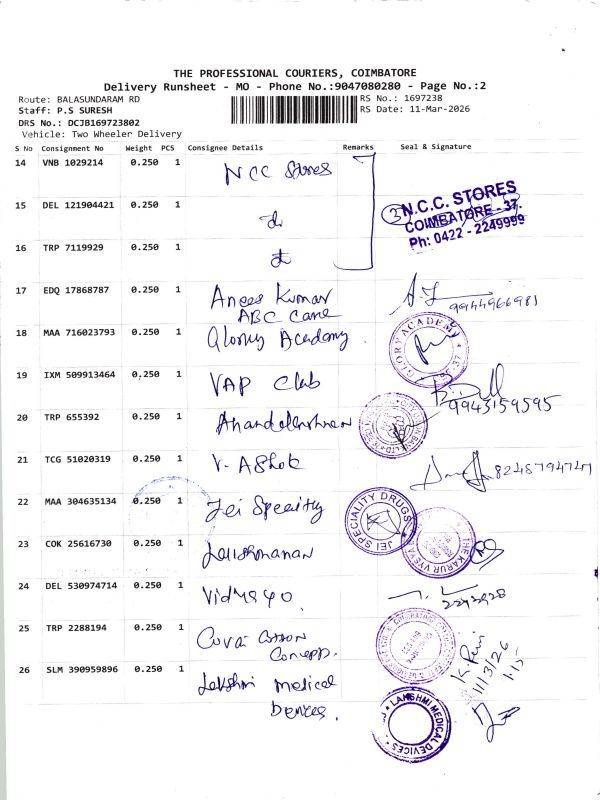 THE PROFESSIONAL COURIERS, COIMBATORE
Delivery Runsheet - MO - Phone No.:9047080280 - Page No.:2
Route: BALASUNDARAM RD
RS No.: 1697238
Staff: P.S SURESH
RS Date: 11-Mar-2026
DRS No.: DCJB169723802
Vehicle: Two Wheeler Delivery
S No Consignment No Weight PCS Consignee Details Remarks Seal & Signature
14 VNB 1029214 0.250 1 NCC Stores
15 DEL 121904421 0.250 1 do
3 N.C.C. STORES
COIMBATORE - 37.
Ph: 0422 - 2249999
16 TRP 7119929 0.250 1 do
17 EDQ 17868787 0.250 1 Anees Kumar
9944966981
ABC Cane
18 MAA 716023793 0.250 1 Glorey Academy
GLORY ACADEMY
19 IXM 509913464 0.250 1 VAP Club
9943159595
20 TRP 655392 0.250 1
21 TCG 51020319 0.250 1 V. AShok
8248794747
22 MAA 304635134 0.250 1 Jei Speciity
JEI SPECIALITY DRUGS
23 COK 25616730 0.250 1
THE KARUR VYSYA
24 DEL 530974714 0.250 1 Vidya
25 TRP 2288194 0.250 1 Covai Cotton
Concepp.
K. Ravi
11/3/26
1.15
26 SLM 390959896 0.250 1 Lakshmi medical
Devices.
LAKSHMI MEDICAL DEVICES